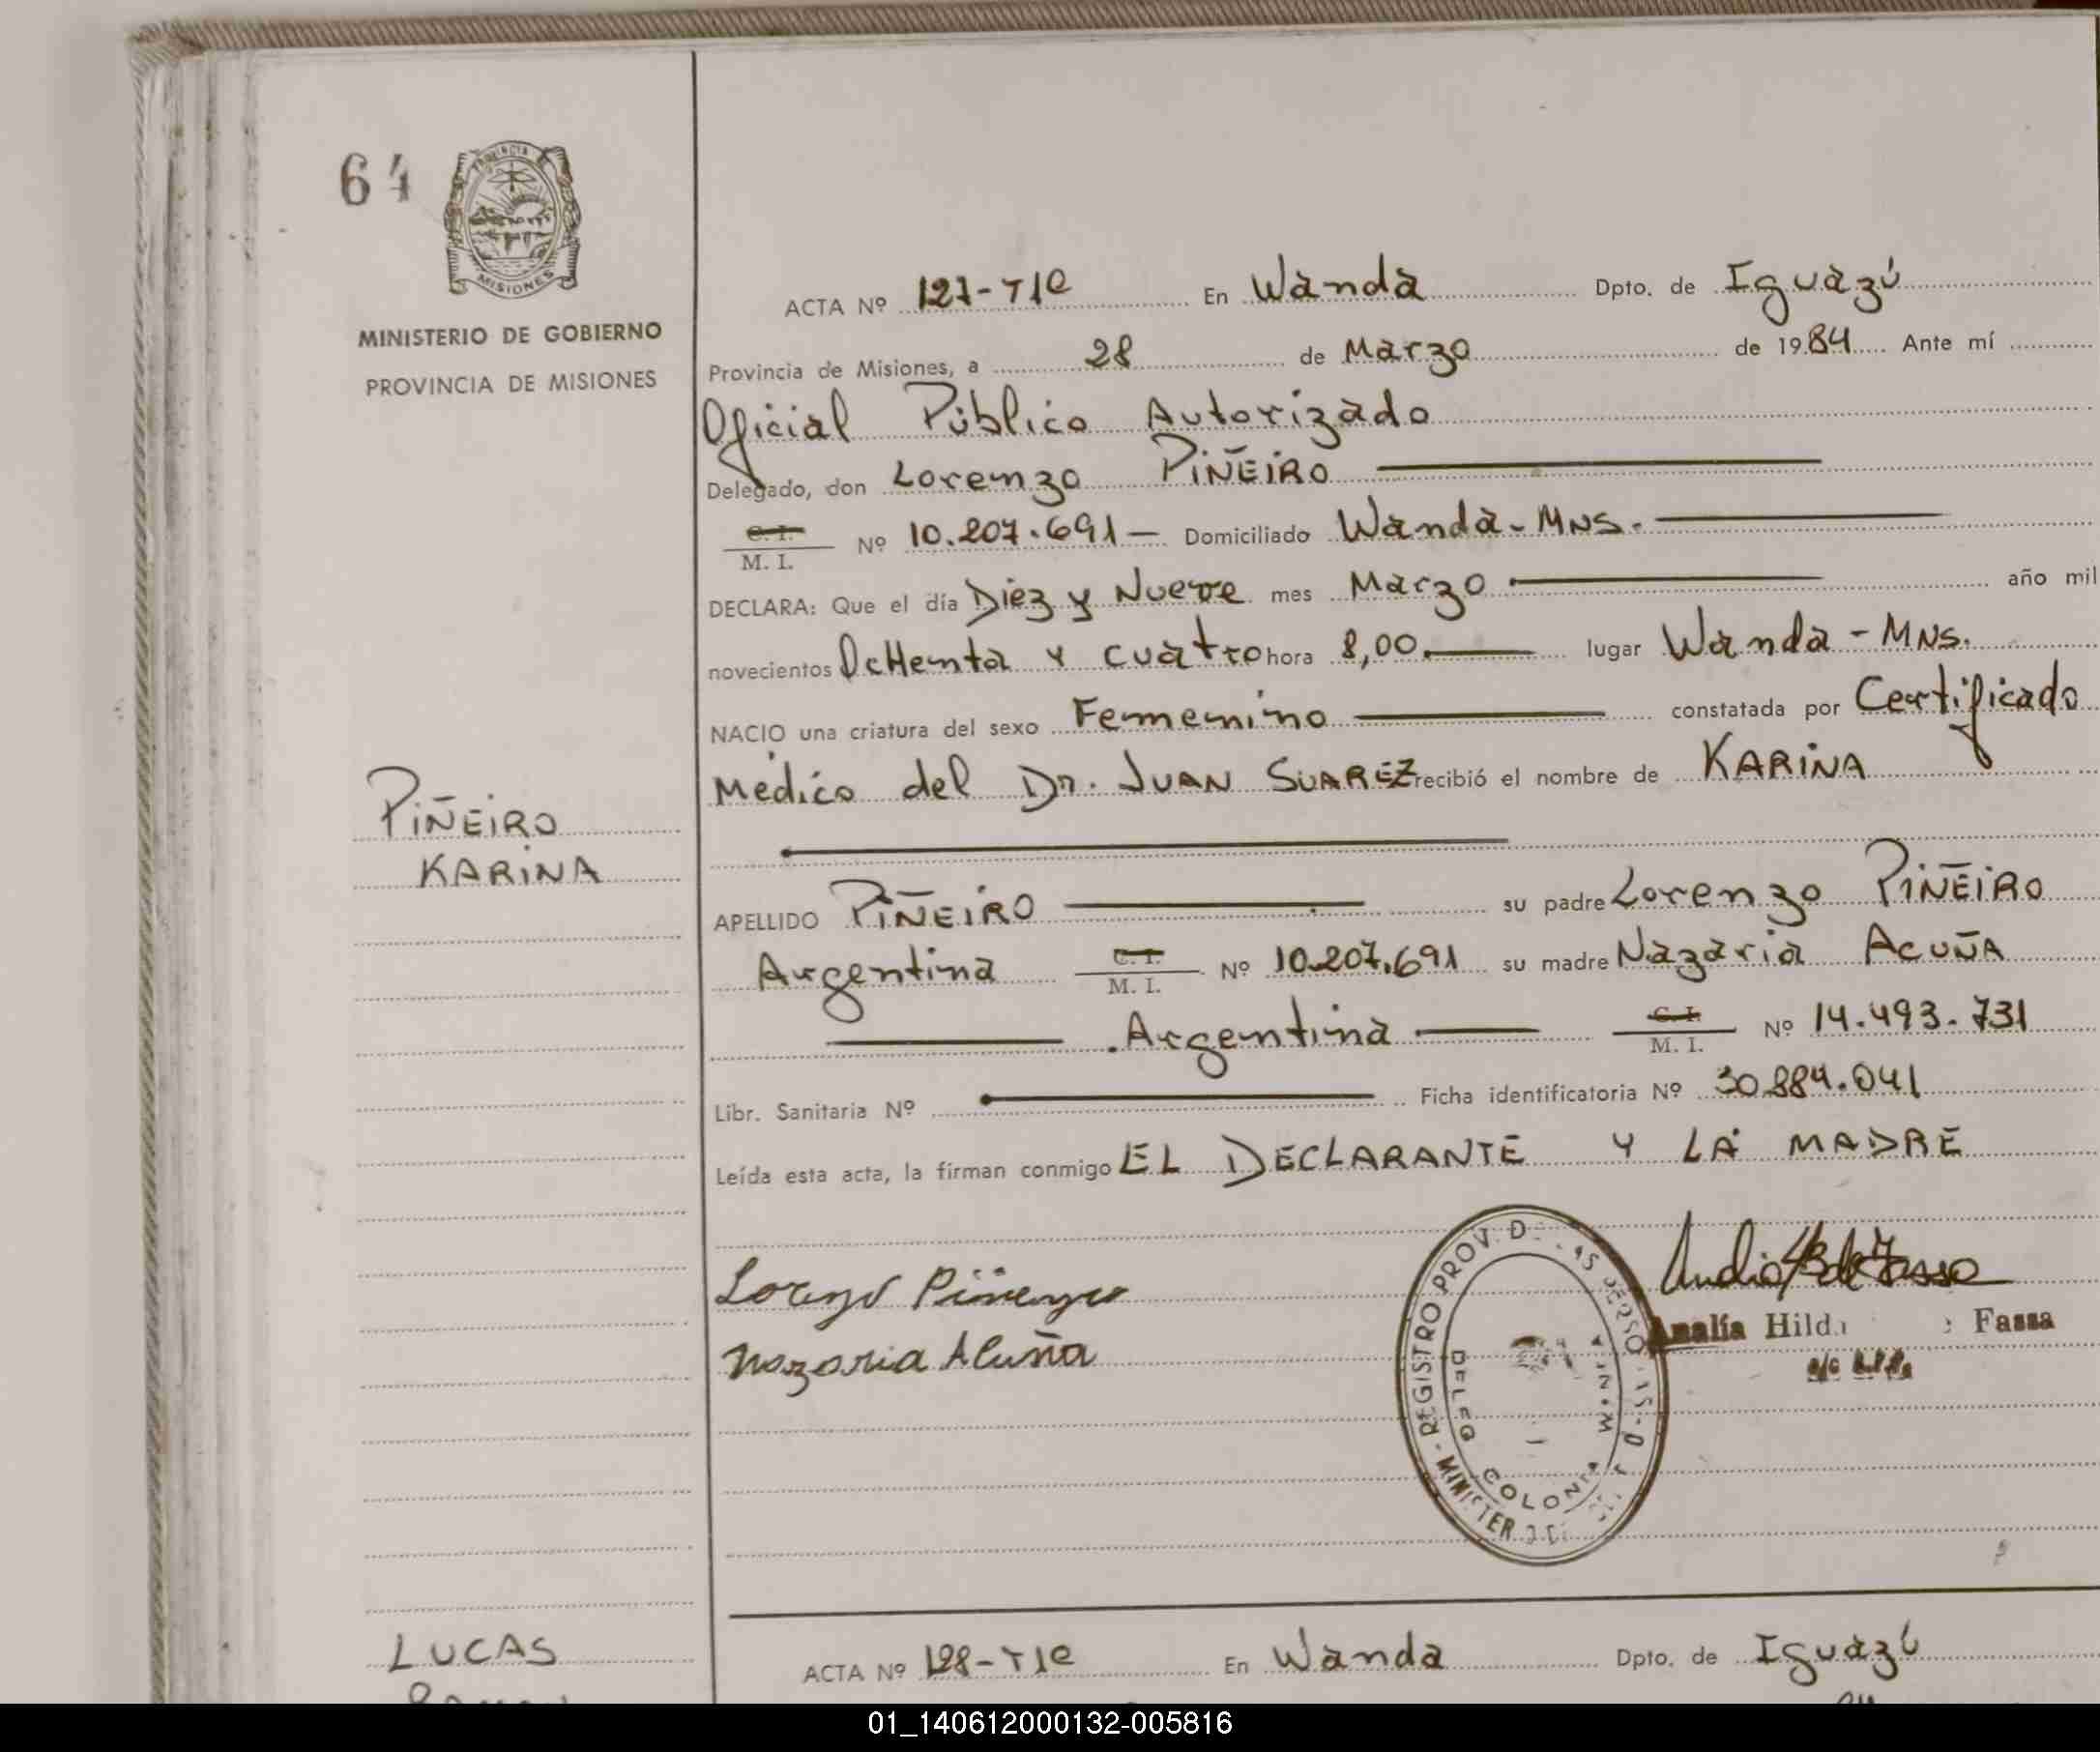 64
MINISTERIO DE GOBIERNO
PROVINCIA DE MISIONES
PROVINCIA DE
MISIONES
ACTA Nº 127-T1C En Wanda Dpto. de Iguazú
Provincia de Misiones, a 28 de Marzo de 1984 Ante mí
Oficial Público Autorizado
Delegado, don Lorenzo PIÑEIRO
C. I.
M. I. Nº 10.207.691 — Domiciliado Wanda - MNS.
DECLARA: Que el día Diez y Nueve mes Marzo año mil
novecientos OcHenta y cuatro hora 8,00 lugar Wanda - MNS.
NACIO una criatura del sexo Femenino constatada por Certificado
Médico del Dr. JUAN SUAREZ recibió el nombre de KARINA
PIÑEIRO
KARINA
APELLIDO PIÑEIRO su padre Lorenzo PIÑEIRO
Argentina C. I. M. I. Nº 10.207.691 su madre Nazaria ACUÑA
Argentina C. I. M. I. Nº 14.493.731
Libr. Sanitaria Nº Ficha identificatoria Nº 30.884.041
Leída esta acta, la firman conmigo EL DECLARANTE Y LA MADRE
Nazaria Acuña
REGISTRO PROV. D
COLONIA
Analía Hild Fassa
LUCAS
ACTA Nº 128-T1C En Wanda Dpto. de Iguazú
01_140612000132-005816